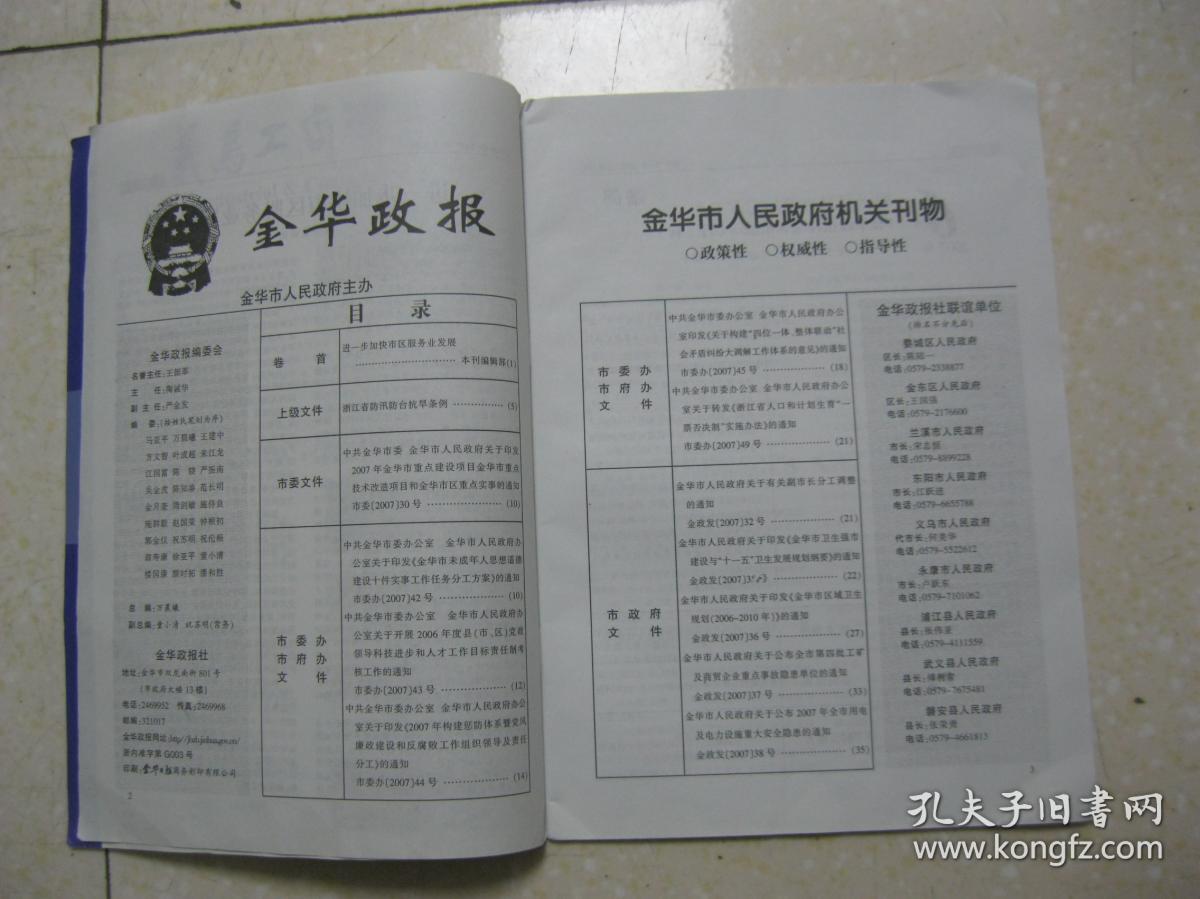 金华政报
金华市人民政府主办
金华政报编委会
名誉主任:王挺革
主 任:陶诚华
副主任:严金发
编 委:(按姓氏笔划为序)
马亚平 万晨曦 王建中
方文智 叶成超 朱江龙
江国富 陈 骁 严振南
施群歆 赵国荣 钟根初
郭金仪 祝苏明 祝伦根
徐亚平 童小清
楼国康
总 编:万晨曦
副总编:童小清 祝苏明(常务)
金华政报社
地址:金华市双龙南街801号
(市政府大楼13楼)
电话:2469952 传真:2469968
邮编:321017
金华政报网址:http://jhzb.jinhua.gov.cn/
浙内准字第G003号
印刷:金华日报商务彩印有限公司
2
目 录
卷 首
进一步加快市区服务业发展
本刊编辑部(1)
上级文件
浙江省防汛防台抗旱条例 (5)
市委文件
中共金华市委 金华市人民政府关于印发
2007年金华市重点建设项目金华市重点
技术改造项目和金华市区重点实事的通知
市委〔2007〕30号 (10)
市委办
市府办
文 件
中共金华市委办公室 金华市人民政府办
公室关于印发《金华市未成年人思想道德
建设十件实事工作任务分工方案》的通知
市委办〔2007〕42号 (10)
中共金华市委办公室 金华市人民政府办
公室关于开展2006年度县(市、区)党政
领导科技进步和人才工作目标责任制考
核工作的通知
市委办〔2007〕43号 (12)
中共金华市委办公室 金华市人民政府办公
室关于印发《2007年构建惩防体系暨党风
廉政建设和反腐败工作组织领导及责任
分工》的通知
市委办〔2007〕44号 (14)
金华市人民政府机关刊物
○政策性 ○权威性 ○指导性
市委办
市府办
文 件
中共金华市委办公室 金华市人民政府办公
室印发《关于构建“四位一体、整体联动”社
会矛盾纠纷大调解工作体系的意见》的通知
市委办〔2007〕45号 (18)
中共金华市委办公室 金华市人民政府办公
室关于转发《浙江省人口和计划生育“一
票否决制”实施办法》的通知
市委办〔2007〕49号 (21)
市政府
文 件
金华市人民政府关于有关副市长分工调整
的通知
金政发〔2007〕32号 (21)
金华市人民政府关于印发《金华市卫生强市
建设与“十一五”卫生发展规划纲要》的通知
金政发〔2007〕35号 (22)
金华市人民政府关于印发《金华市区域卫生
规划(2006-2010年)》的通知
金政发〔2007〕36号 (27)
金华市人民政府关于公布全市第四批工矿
及商贸企业重点事故隐患单位的通知
金政发〔2007〕37号 (33)
金华市人民政府关于公布2007年全市用电
及电力设施重大安全隐患的通知
金政发〔2007〕38号 (35)
金华政报社联谊单位
(排名不分先后)
婺城区人民政府
区长:陈陆一
电话:0579-2338877
金东区人民政府
区长:王国强
电话:0579-2176600
兰溪市人民政府
市长:宋志恒
电话:0579-8899228
东阳市人民政府
市长:江跃进
电话:0579-6655788
义乌市人民政府
代市长:何美华
电话:0579-5522612
永康市人民政府
市长:卢跃东
电话:0579-7101062
浦江县人民政府
县长:张伟亚
电话:0579-4111559
武义县人民政府
县长:傅利常
电话:0579-7675481
磐安县人民政府
县长:张荣贵
电话:0579-4661813
3
孔夫子旧书网
www.kongfz.com